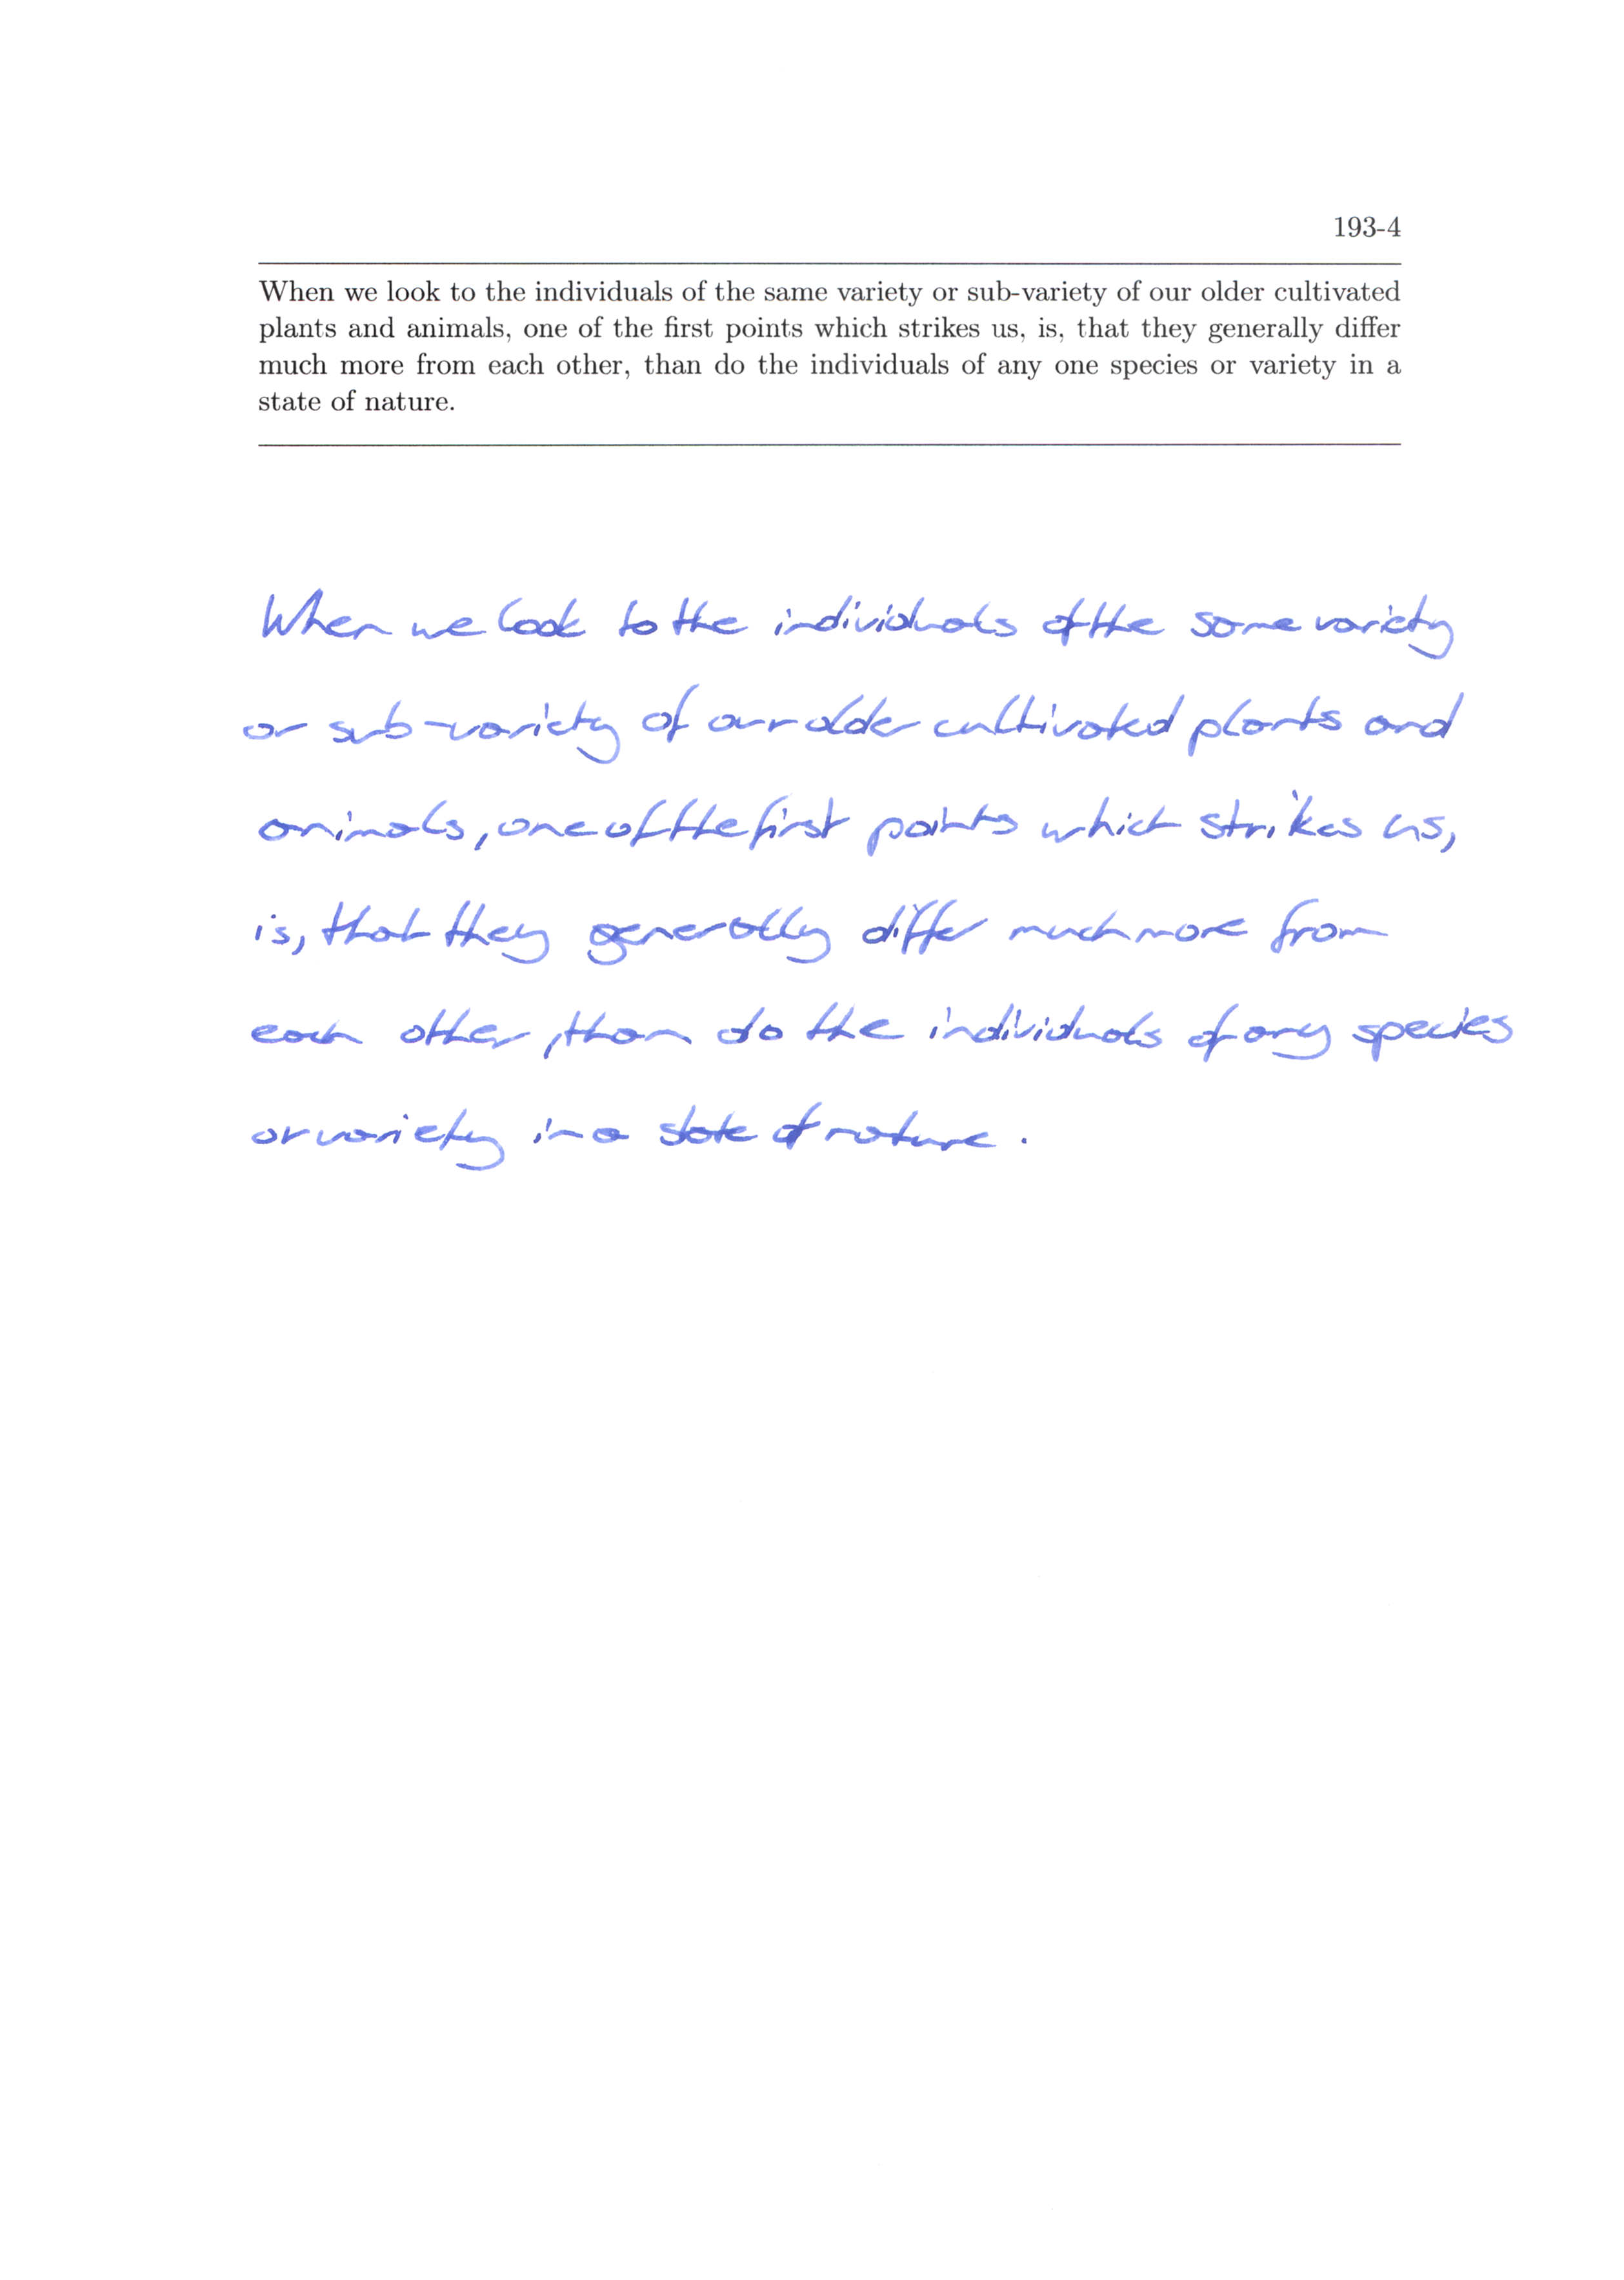 193-4
When we look to the individuals of the same variety or sub-variety of our older cultivated
plants and animals, one of the first points which strikes us, is, that they generally differ
much more from each other, than do the individuals of any one species or variety in a
state of nature.
When we look to the individuals of the same variety
or sub-variety of our older cultivated plants and
animals, one of the first points which strikes us,
is, that they generally differ much more from
each other, than do the individuals of any species
or variety in a state of nature.